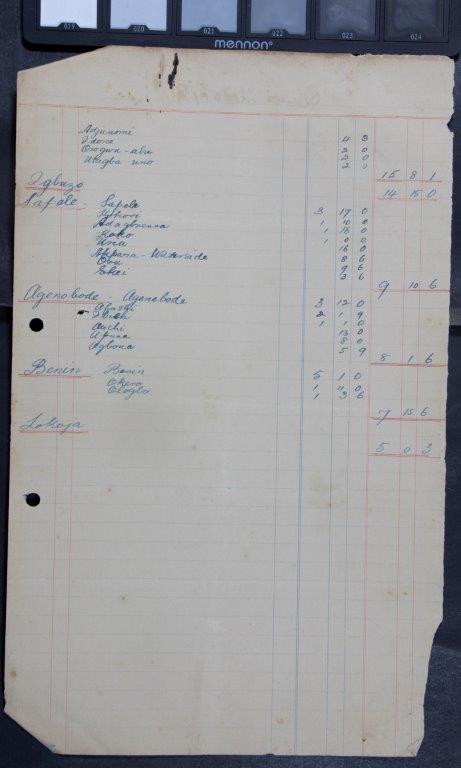 019 020 021 022 023 024
mennon
Adjunomi 4 3
Idone 2 0
Osogun-abu 2 0
Utagba uno 2 0
15 8 1
Igbuzo 14 15 0
Sapele - Sapele 3 17 0
1 10 0
Koko 1 16 0
1 0 0
Akpara - Waterside 16 0
Obu 8 6
9 6
3 6
9 10 6
Agenebode Agenebode 3 12 0
2 1 9
Auchi 1 1 0
13 0
8 0
Agbona 5 9
8 1 6
Benin Benin 5 1 0
1 11 0
Ologbo 1 3 6
7 15 6
Lokoja
5 0 3